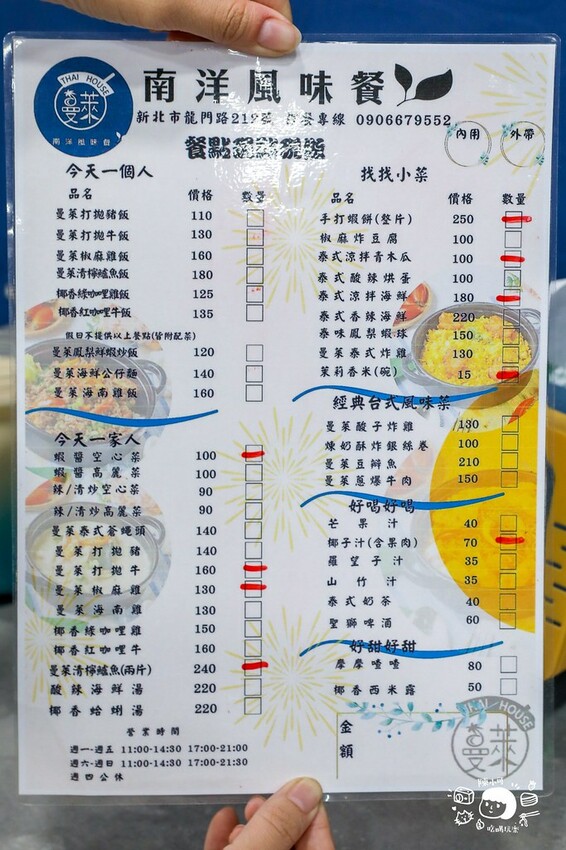 THAI HOUSE
曼萊
南洋風味餐
南洋風味餐
新北市龍門路212號 專線 0906679552
內用 外帶
今天一個人
品名 價格 數量
曼萊打拋豬飯 110
曼萊打拋牛飯 130
曼萊椒麻雞飯 160
曼萊清檸鱸魚飯 180
椰香綠咖哩雞飯 125
椰香紅咖哩牛飯 135
假日不提供以上餐點(皆附配菜)
曼萊鳳梨鮮蝦炒飯 120
曼萊海鮮公仔麵 140
曼萊海南雞飯 160
今天一家人
蝦醬空心菜 100
蝦醬高麗菜 100
辣/清炒空心菜 90
辣/清炒高麗菜 90
曼萊泰式蒼蠅頭 140
曼萊打拋豬 140
曼萊打拋牛 160
曼萊椒麻雞 130
曼萊海南雞 130
椰香綠咖哩雞 150
椰香紅咖哩牛 160
曼萊清檸鱸魚(兩片) 240
酸辣海鮮湯 220
椰香蛤蜊湯 220
營業時間
週一-週五 11:00-14:30 17:00-21:00
週六-週日 11:00-14:30 17:00-21:30
週四公休
找找小菜
品名 價格 數量
手打蝦餅(整片) 250
椒麻炸豆腐 100
泰式涼拌青木瓜 100
泰式酸辣烘蛋 100
泰式涼拌海鮮 180
泰式香辣海鮮 220
泰味鳳梨蝦球 150
曼萊泰式炸雞 130
茉莉香米(碗) 15
經典台式風味菜
曼萊酸子炸雞 /130
煉奶酥炸銀絲卷 100
曼萊豆瓣魚 210
曼萊蔥爆牛肉 150
好喝好喝
芒果汁 40
椰子汁(含果肉) 70
羅望子汁 35
山竹汁 35
泰式奶茶 40
聖獅啤酒 60
好甜好甜
摩摩喳喳 80
椰香西米露 50
金額
THAI HOUSE
曼萊